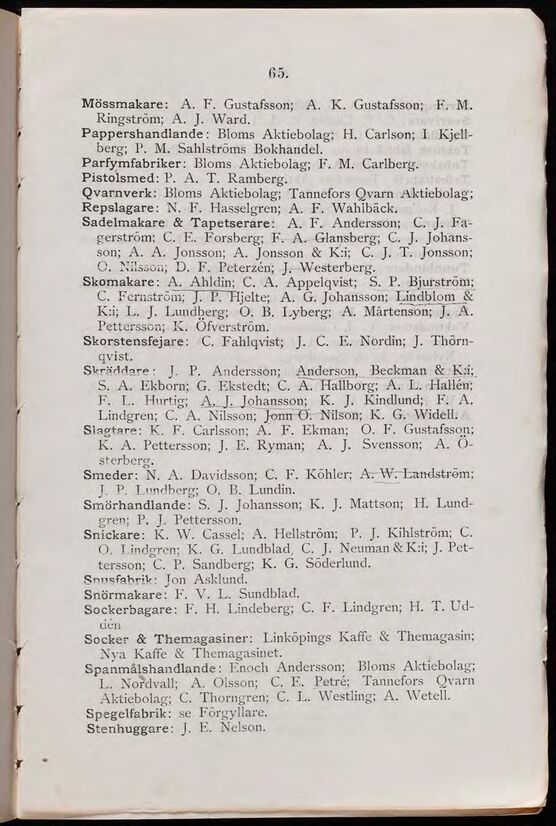 65.
Mössmakare: A. F. Gustafsson; A. K. Gustafsson; F. M.
Ringström; A. J. Ward.
Pappershandlande: Bloms Aktiebolag; H. Carlson; I. Kjell-
berg; P. M. Sahlströms Bokhandel.
Parfymfabriker: Bloms Aktiebolag; F. M. Carlberg.
Pistolsmed: P. A. T. Ramberg.
Qvarnverk: Bloms Aktiebolag; Tannefors Qvarn Aktiebolag;
Repslagare: N. F. Hasselgren; A. F. Wahlbäck.
Sadelmakare & Tapetserare: A. F. Andersson; C. J. Fa-
gerström; C. E. Forsberg; F. A. Glansberg; C. J. Johans-
son; A. A. Jonsson; A. Jonsson & K:i; C. J. T. Jonsson;
O. Nilsson; D. F. Peterzén; J. Westerberg.
Skomakare: A. Ahldin; C. A. Appelqvist; S. P. Bjurström;
C. Fernström; J. P. Hjelte; A. G. Johansson; Lindblom &
K:i; L. J. Lundberg; O. B. Lyberg; A. Mårtenson; J. A.
Pettersson; K. Öfverström.
Skorstensfejare: C. Fahlqvist; J. C. E. Nordin; J. Thörn-
qvist.
Skräddare: J. P. Andersson; Anderson, Beckman & K:i;
S. A. Ekborn; G. Ekstedt; C. A. Hallborg; A. L. Hallén;
F. L. Hurtig; A. J. Johansson; K. J. Kindlund; F. A.
Lindgren; C. A. Nilsson; John O. Nilson; K. G. Widell.
Slagtare: K. F. Carlsson; A. F. Ekman; O. F. Gustafsson;
K. A. Pettersson; J. E. Ryman; A. J. Svensson; A. Ö-
sterberg.
Smeder: N. A. Davidsson; C. F. Köhler; A. W. Landström;
J. P. Lundberg; O. B. Lundin.
Smörhandlande: S. J. Johansson; K. J. Mattson; H. Lund-
gren; P. J. Pettersson.
Snickare: K. W. Cassel; A. Hellström; P. J. Kihlström; C.
O. Lindgren; K. G. Lundblad, C. J. Neuman & K:i; J. Pet-
tersson; C. P. Sandberg; K. G. Söderlund.
Snusfabrik: Jon Asklund.
Snörmakare: F. V. L. Sundblad.
Sockerbagare: F. H. Lindeberg; C. F. Lindgren; H. T. Ud-
dén
Socker & Themagasiner: Linköpings Kaffe & Themagasin;
Nya Kaffe & Themagasinet.
Spanmålshandlande: Enoch Andersson; Bloms Aktiebolag;
L. Nordvall; A. Olsson; C. E. Petré; Tannefors Qvarn
Aktiebolag; C. Thorngren; C. L. Westling; A. Wetell.
Spegelfabrik: se Förgyllare.
Stenhuggare: J. E. Nelson.